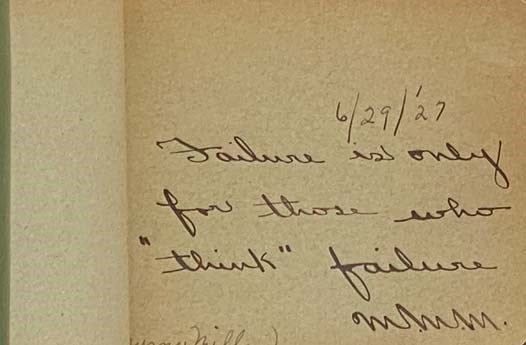 6/29/'27
Failure is only
for those who
"think" failure
M.M.M.